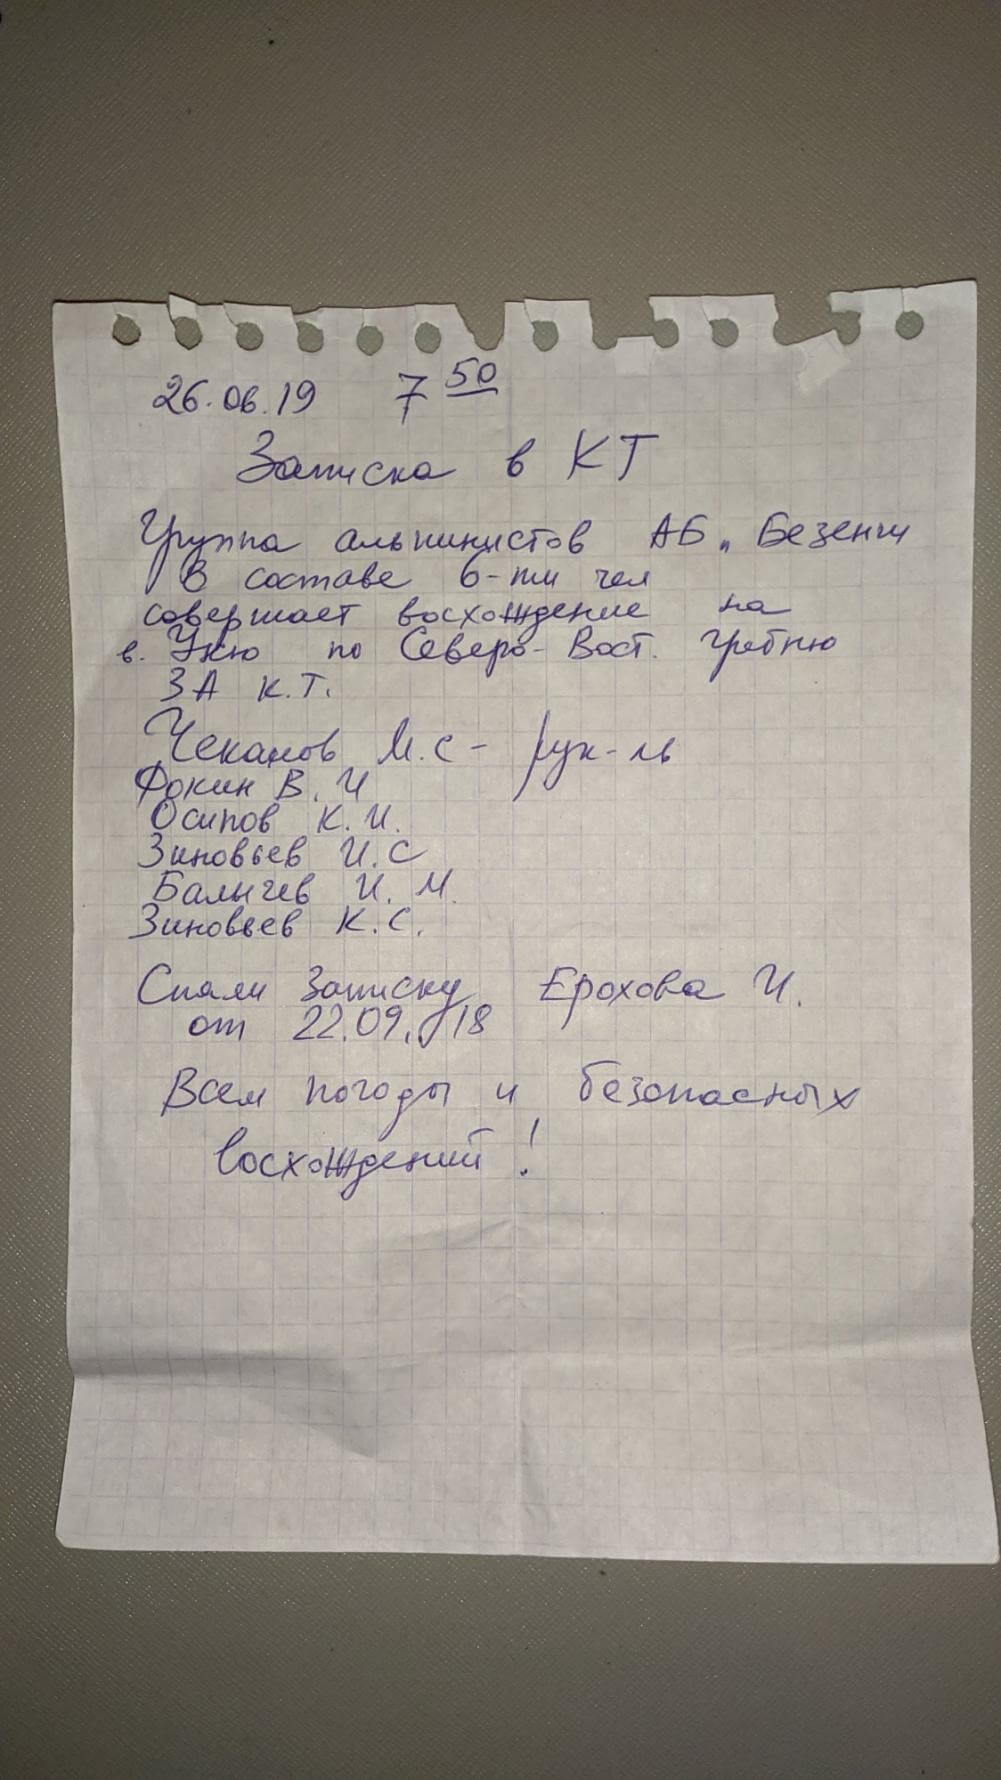 26.06.19 7 50
Записка в КТ
Группа альпинистов АБ „Безенги
в составе 6-ти чел
совершает восхождение на
в. Укю по Северо-Вост. гребню
3А к.т.
Чеканов М.С - рук-ль
Фокин В. И
Осипов К.И.
Зиновьев И.С
Балычев И. М.
Зиновьев К.С.
Сняли записку Ерохова И.
от 22.09.18
Всем погоды и безопасных
восхождений!